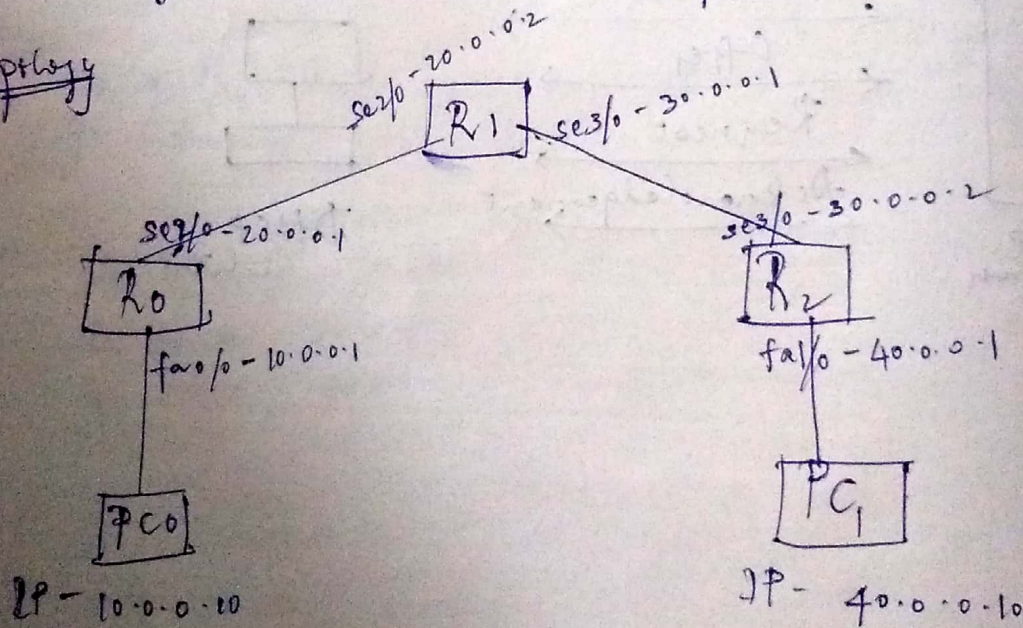 se2/0 - 20.0.0.2
R1
se3/0 - 30.0.0.1
se2/0 - 20.0.0.1
se3/0 - 30.0.0.2
R0
R2
fa0/0 - 10.0.0.1
fa1/0 - 40.0.0.1
PC0
PC1
IP - 10.0.0.10
IP - 40.0.0.10